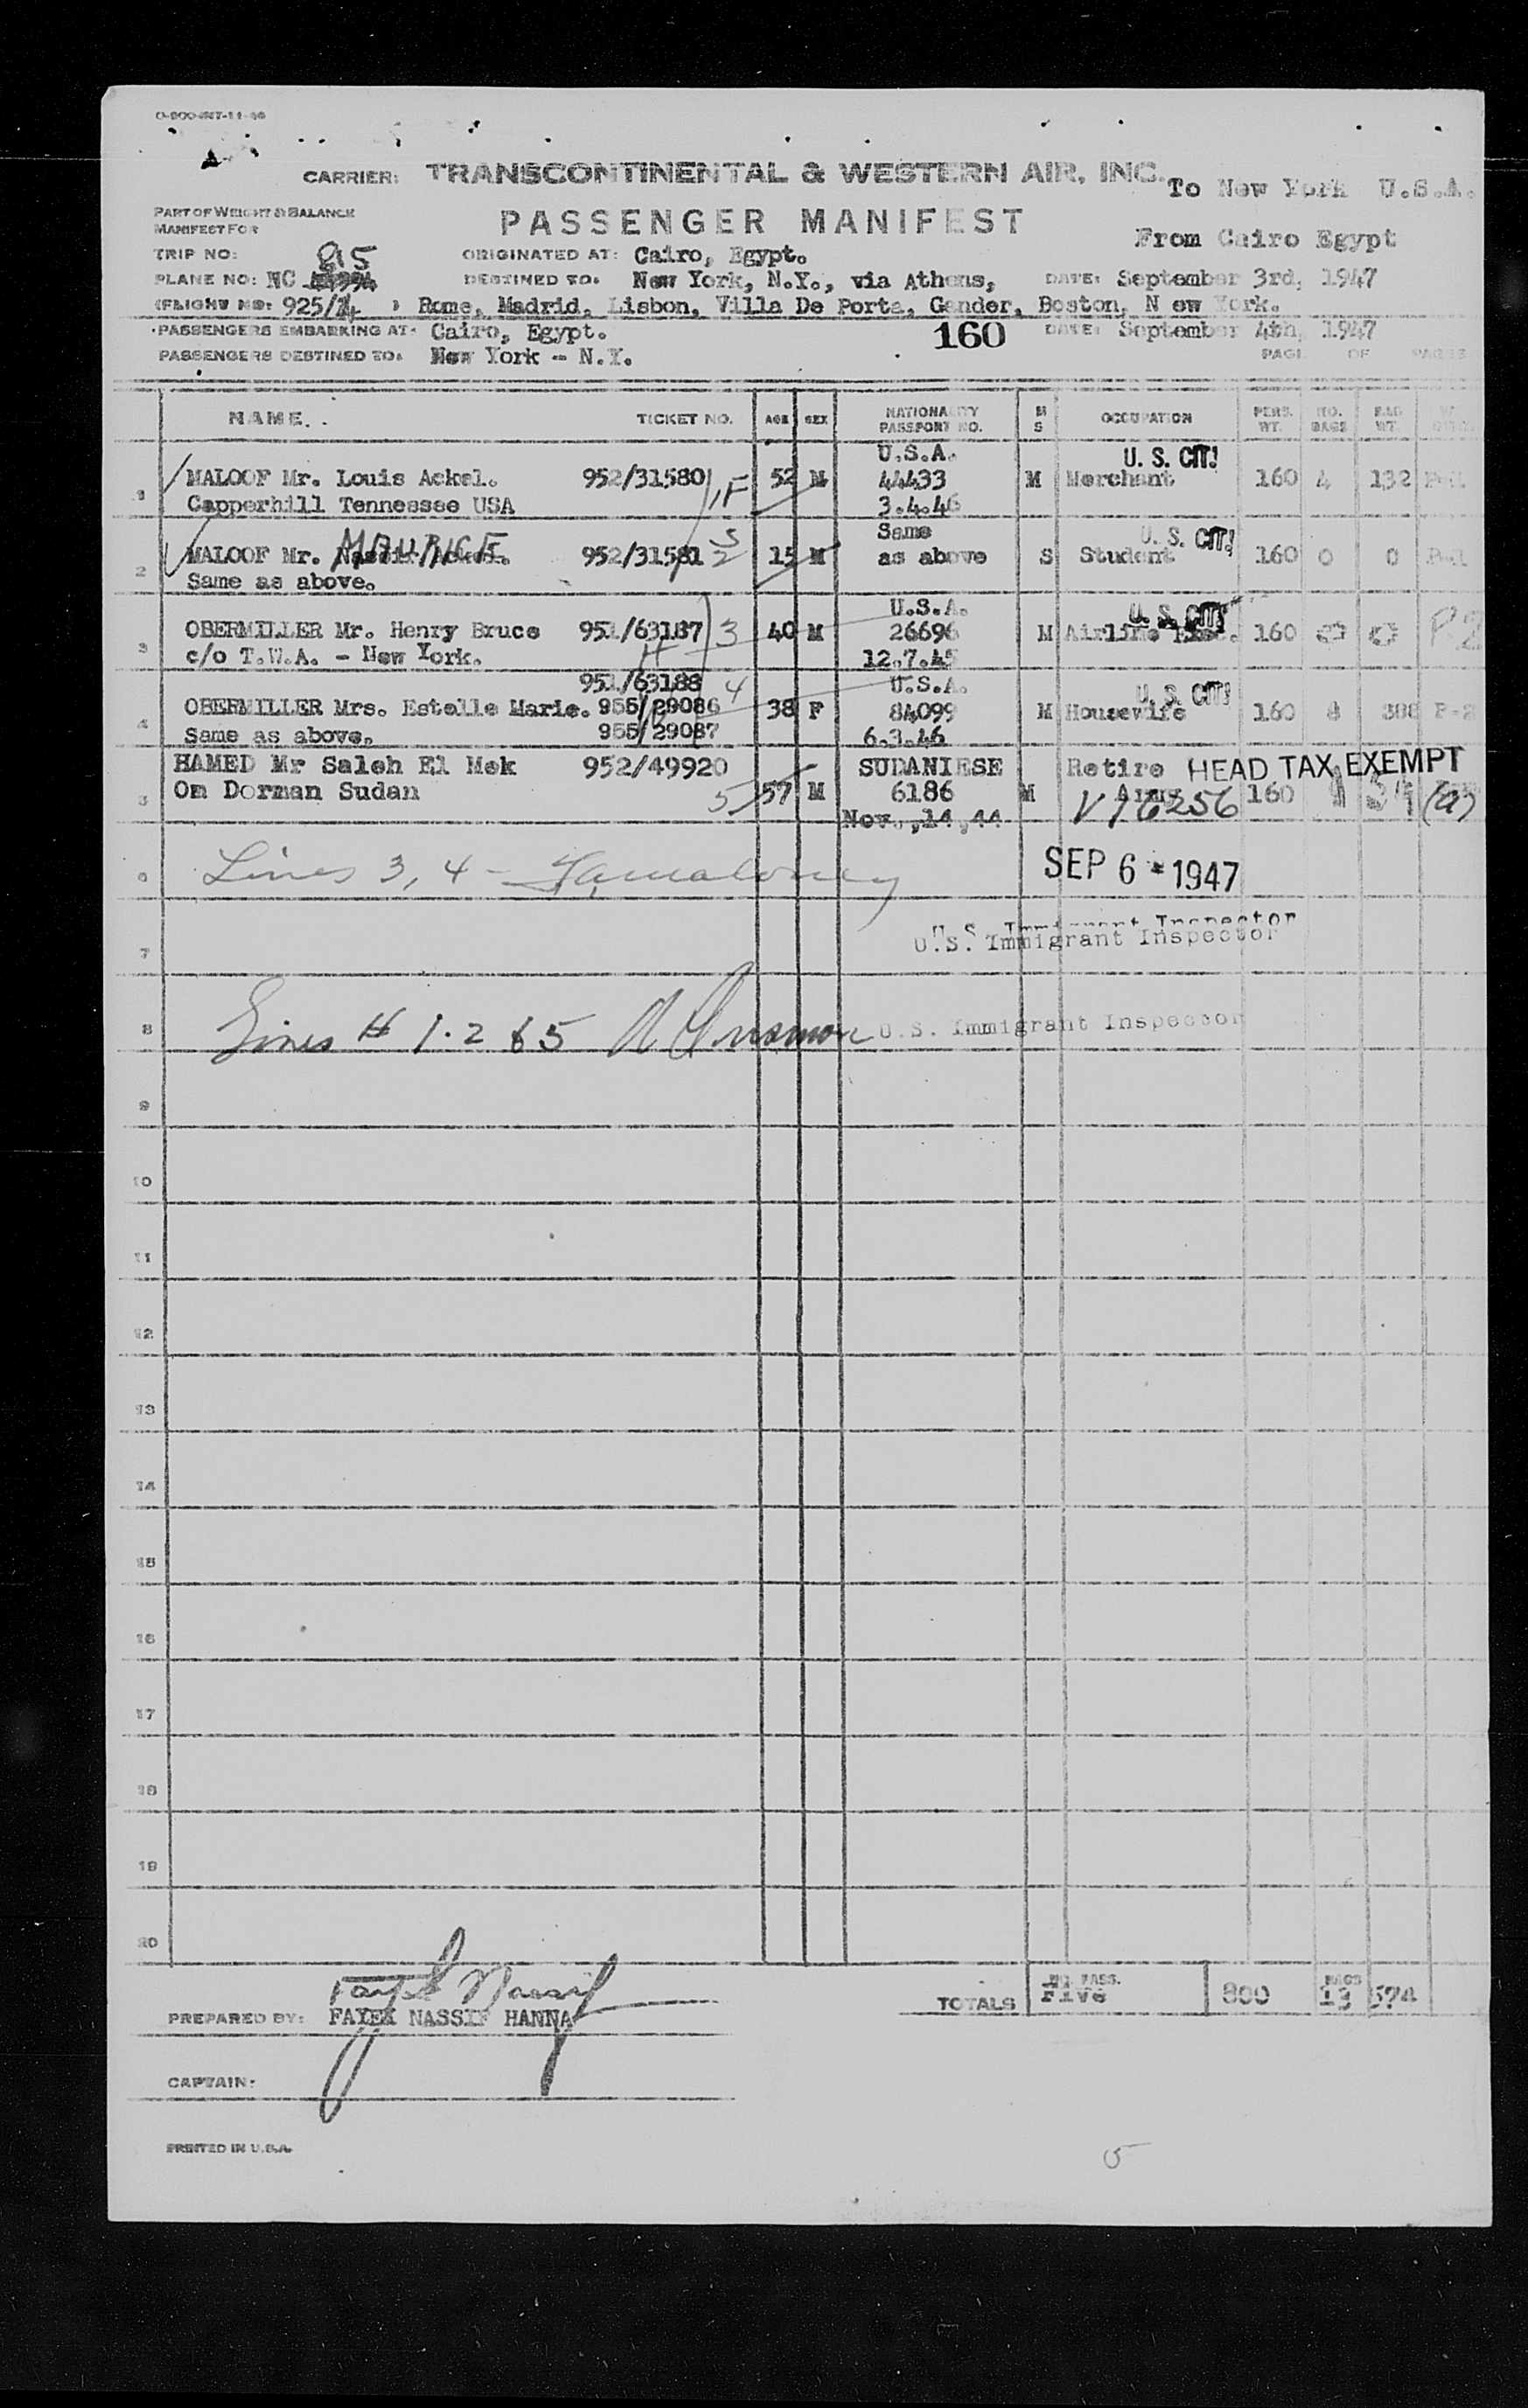 O-800-INT-11-46
CARRIER: TRANSCONTINENTAL & WESTERN AIR, INC. To New York U.S.A.
PART OF WEIGHT & BALANCE
MANIFEST FOR
PASSENGER MANIFEST
From Cairo Egypt
TRIP NO: ORIGINATED AT: Cairo, Egypt.
PLANE NO: NC DESTINED TO: New York, N.Y., via Athens, DATE: September 3rd, 1947
(FLIGHT NO: 925/ ) Rome, Madrid, Lisbon, Villa De Porta, Gander, Boston, N ew York.
PASSENGERS EMBARKING AT: Cairo, Egypt. 160 DATE: September 4th, 1947
PASSENGERS DESTINED TO: New York - N.Y. PAGE OF PAGES
NAME. TICKET NO. AGE SEX NATIONALITY PASSPORT NO. M S OCCUPATION PERS. WT. NO. BAGS BAG WT.
U.S.A. U. S. CIT!
1 MALOOF Mr. Louis Ackel. 952/31580 52 M 44433 M Merchant 160 4 132
Capperhill Tennessee USA 3.4.46
Same U. S. CIT!
2 MALOOF Mr. MAURICE 952/31581 2 15 M as above S Student 160 0 0
Same as above.
U.S.A. U. S. CIT!
3 OBERMILLER Mr. Henry Bruce 951/63187 3 40 M 26696 M Airline 160 P2
c/o T.W.A. - New York. 12.7.45
951/63188 4 U.S.A. U. S. CIT!
4 OBERMILLER Mrs. Estelle Marie. 955/29086 38 F 84099 M Housewife 160 P-2
Same as above. 955/29087 6.3.46
HAMED Mr Saleh El Mek 952/49920 SUDANIESE Retire HEAD TAX EXEMPT
5 Om Dorman Sudan 5 57 M 6186 M 160
Nov.,14,44 V16256
6 Lines 3, 4 - SEP 6 - 1947
U.S. Immigrant Inspector
7 U.S. Immigrant Inspector
8 Lines # 1·2 & 5 U.S. Immigrant Inspector
9
10
11
12
13
14
15
16
17
18
19
20
TOTALS NO. PASS. Five 800 BAGS 13 574
PREPARED BY: FAYEK NASSIF HANNA
CAPTAIN:
PRINTED IN U.S.A.
5